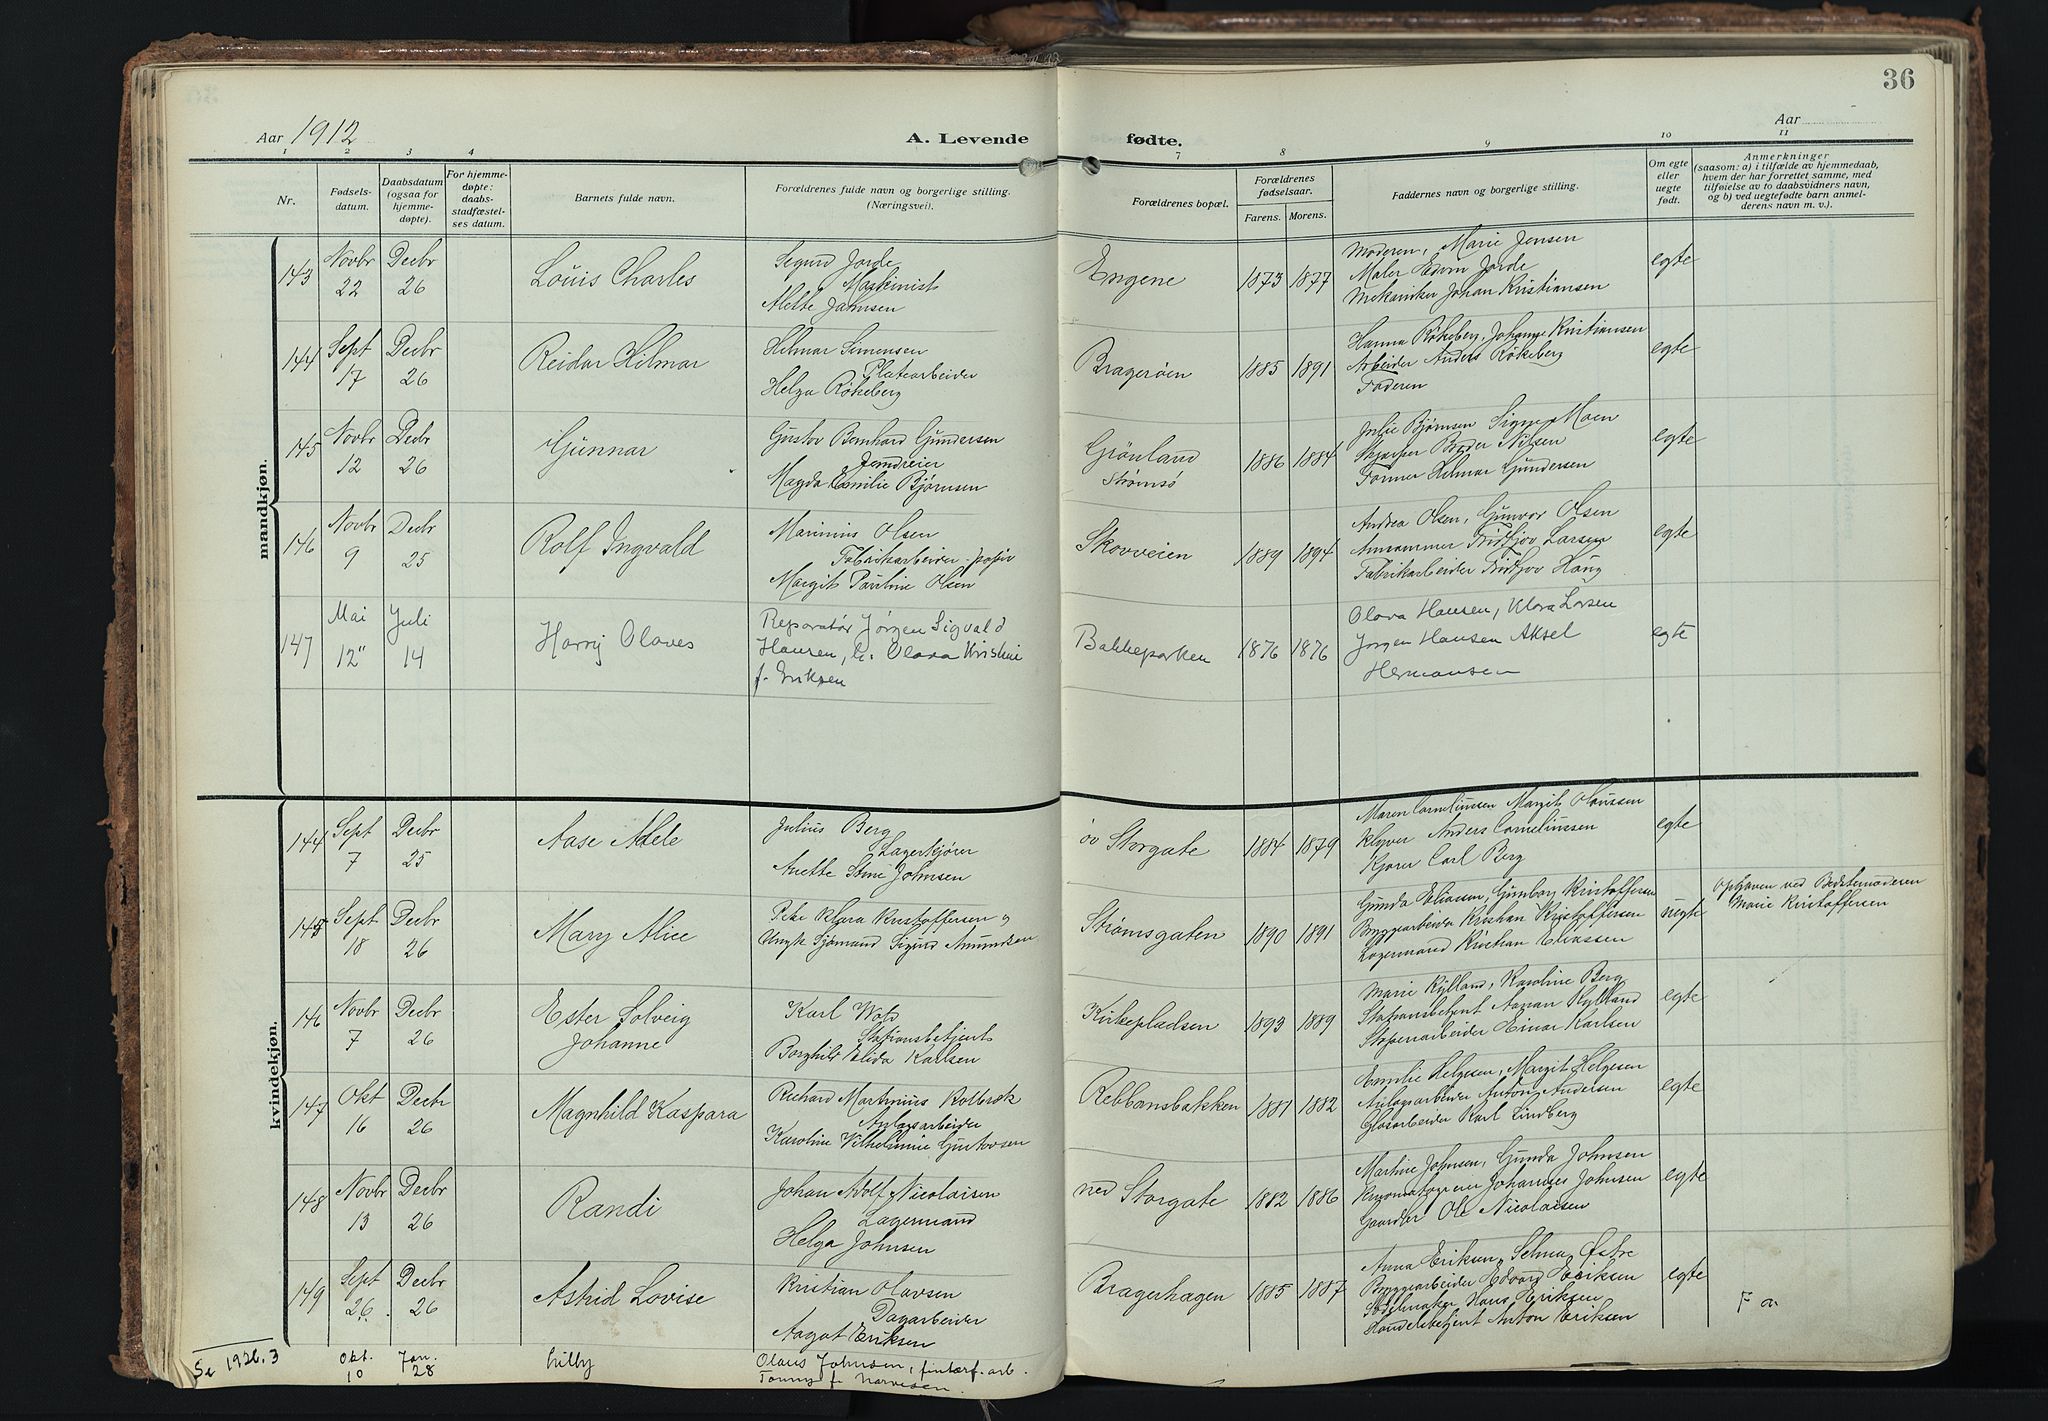 36
Aar 1912
A. Levende fødte.
Aar
1 2 3 4 7 8 9 10 11
Nr.
Fødsels-
datum.
Daabsdatum
(ogsaa for
hjemme-
døpte).
For hjemme-
døpte:
daabs-
stadfæstel-
ses datum.
Barnets fulde navn.
Forældrenes fulde navn og borgerlige stilling.
(Næringsvei).
Forældrenes bopæl.
Forældrenes
fødselsaar.
Farens. Morens.
Faddernes navn og borgerlige stilling.
Om egte
eller
uegte
født.
Anmerkninger
(saasom: a) i tilfælde av hjemmedaab,
hvem der har forrettet samme, med
tilføielse av to daabsvidners navn,
og b) ved uegtefødte barn anmel-
derens navn m. v.).
mandkjøn.
143 Novbr 22 Decbr 26 Louis Charles
Sigurd Jorde
Maskinist
Mette Jahnsen
Engene 1873 1877
Moderen, Marie Jensen
Maler Edvin Jorde
Mekaniker Johan Kristiansen
egte
144 Sept 17 Decbr 26 Reidar Hilmar
Hilmar Simensen
Platearbeider
Helga Røkeberg
Bragerøen 1885 1891
Hanna Røkeberg, Johanne Kristiansen
Arbeider Anders Røkeberg
Faderen
egte
145 Novbr 12 Decbr 26 Gunnar
Gustav Bernhard Gundersen
Jerndreier
Magda Emilie Bjørnsen
Grønland
Strømsø
1886 1884
Julie Bjørnsen Signe Moen
Nilsen
Former Hilmar Gundersen
egte
146 Novbr 9 Decbr 25 Rolf Ingvald
Marinius Olsen
Fabrikarbeider. papir
Margit Pauline Olsen
Skovveien 1889 1894
Andrea Olsen, Gunvor Olsen
Fridtjov Larsen
Fabrikarbeider Fridtjov Haug
egte
147 Mai 12 Juli 14 Harry Olaves
Reparatør Jørgen Sigvald
Hansen, h. Olava Kristine
f. Eriksen
Bakkeparken 1876 1876
Olava Hansen, Klara Larsen
Jørgen Hansen Aksel
Hermansen
egte
kvindekjøn.
144 Sept 7 Decbr 25 Aase Adele
Julius Berg
Lagerkjører
Anette Stine Johnsen
øv Storgate 1884 1879
Maren Corneliussen Margit Olaussen
Kløver Anders Corneliussen
Kjører Carl Berg
egte
145 Sept 18 Decbr 26 Mary Alice
Pike Klara Kristoffersen og
Ungk Sjømand Sigurd Amundsen
Strømsgaten 1890 1891
Gunda Eliassen, Gunborg Kristoffersen
Bryggearbeider Kristian Kristoffersen
Lagermand Kristian Eliassen
uegte
Opgaven ved Bedstemoderen
Marie Kristoffersen
146 Novbr 7 Decbr 26 Ester Solveig
Johanne
Karl Wold
Stationsbetjent
Borghild Alida Karlsen
Kirkepladsen 1893 1889
Marie Kylland, Karoline Berg
Stationsbetjent Kylland
Støperiarbeider Einar Karlsen
egte
147 Okt 16 Decbr 26 Magnhild Kaspara
Richard Martinius Kolbræk
Anlægsarbeider
Karoline Vilhelmine Gustavsen
Rebbansbakken 1881 1882
Emilie Helgesen, Margit Helgesen
Anlægsarbeider Anton Andersen
Glasarbeider Karl Lindberg
egte
148 Novbr 13 Decbr 26 Randi
Johan Adolf Nicolaisen
Lagermand
Helga Johnsen
ned Storgate 1882 1886
Martine Johnsen, Gunda Johnsen
Johannes Johnsen
Ole Nicolaisen
egte
149 Sept 26. Decbr 26 Astrid Lovise
Kristian Olavsen
Dagarbeider
Aagot Eriksen
Bragerhagen 1885 1887
Anna Eriksen, Selma Østre
Bryggearbeider Edvard Eriksen
Sadelmaker Hans Eriksen
Handelsbetjent Anton Eriksen
egte
F a.
Se 1926. 3 Okt. 10 Jan. 28 Lilly
Olaus Johnsen, arb.
Tonny f. Narvesen.